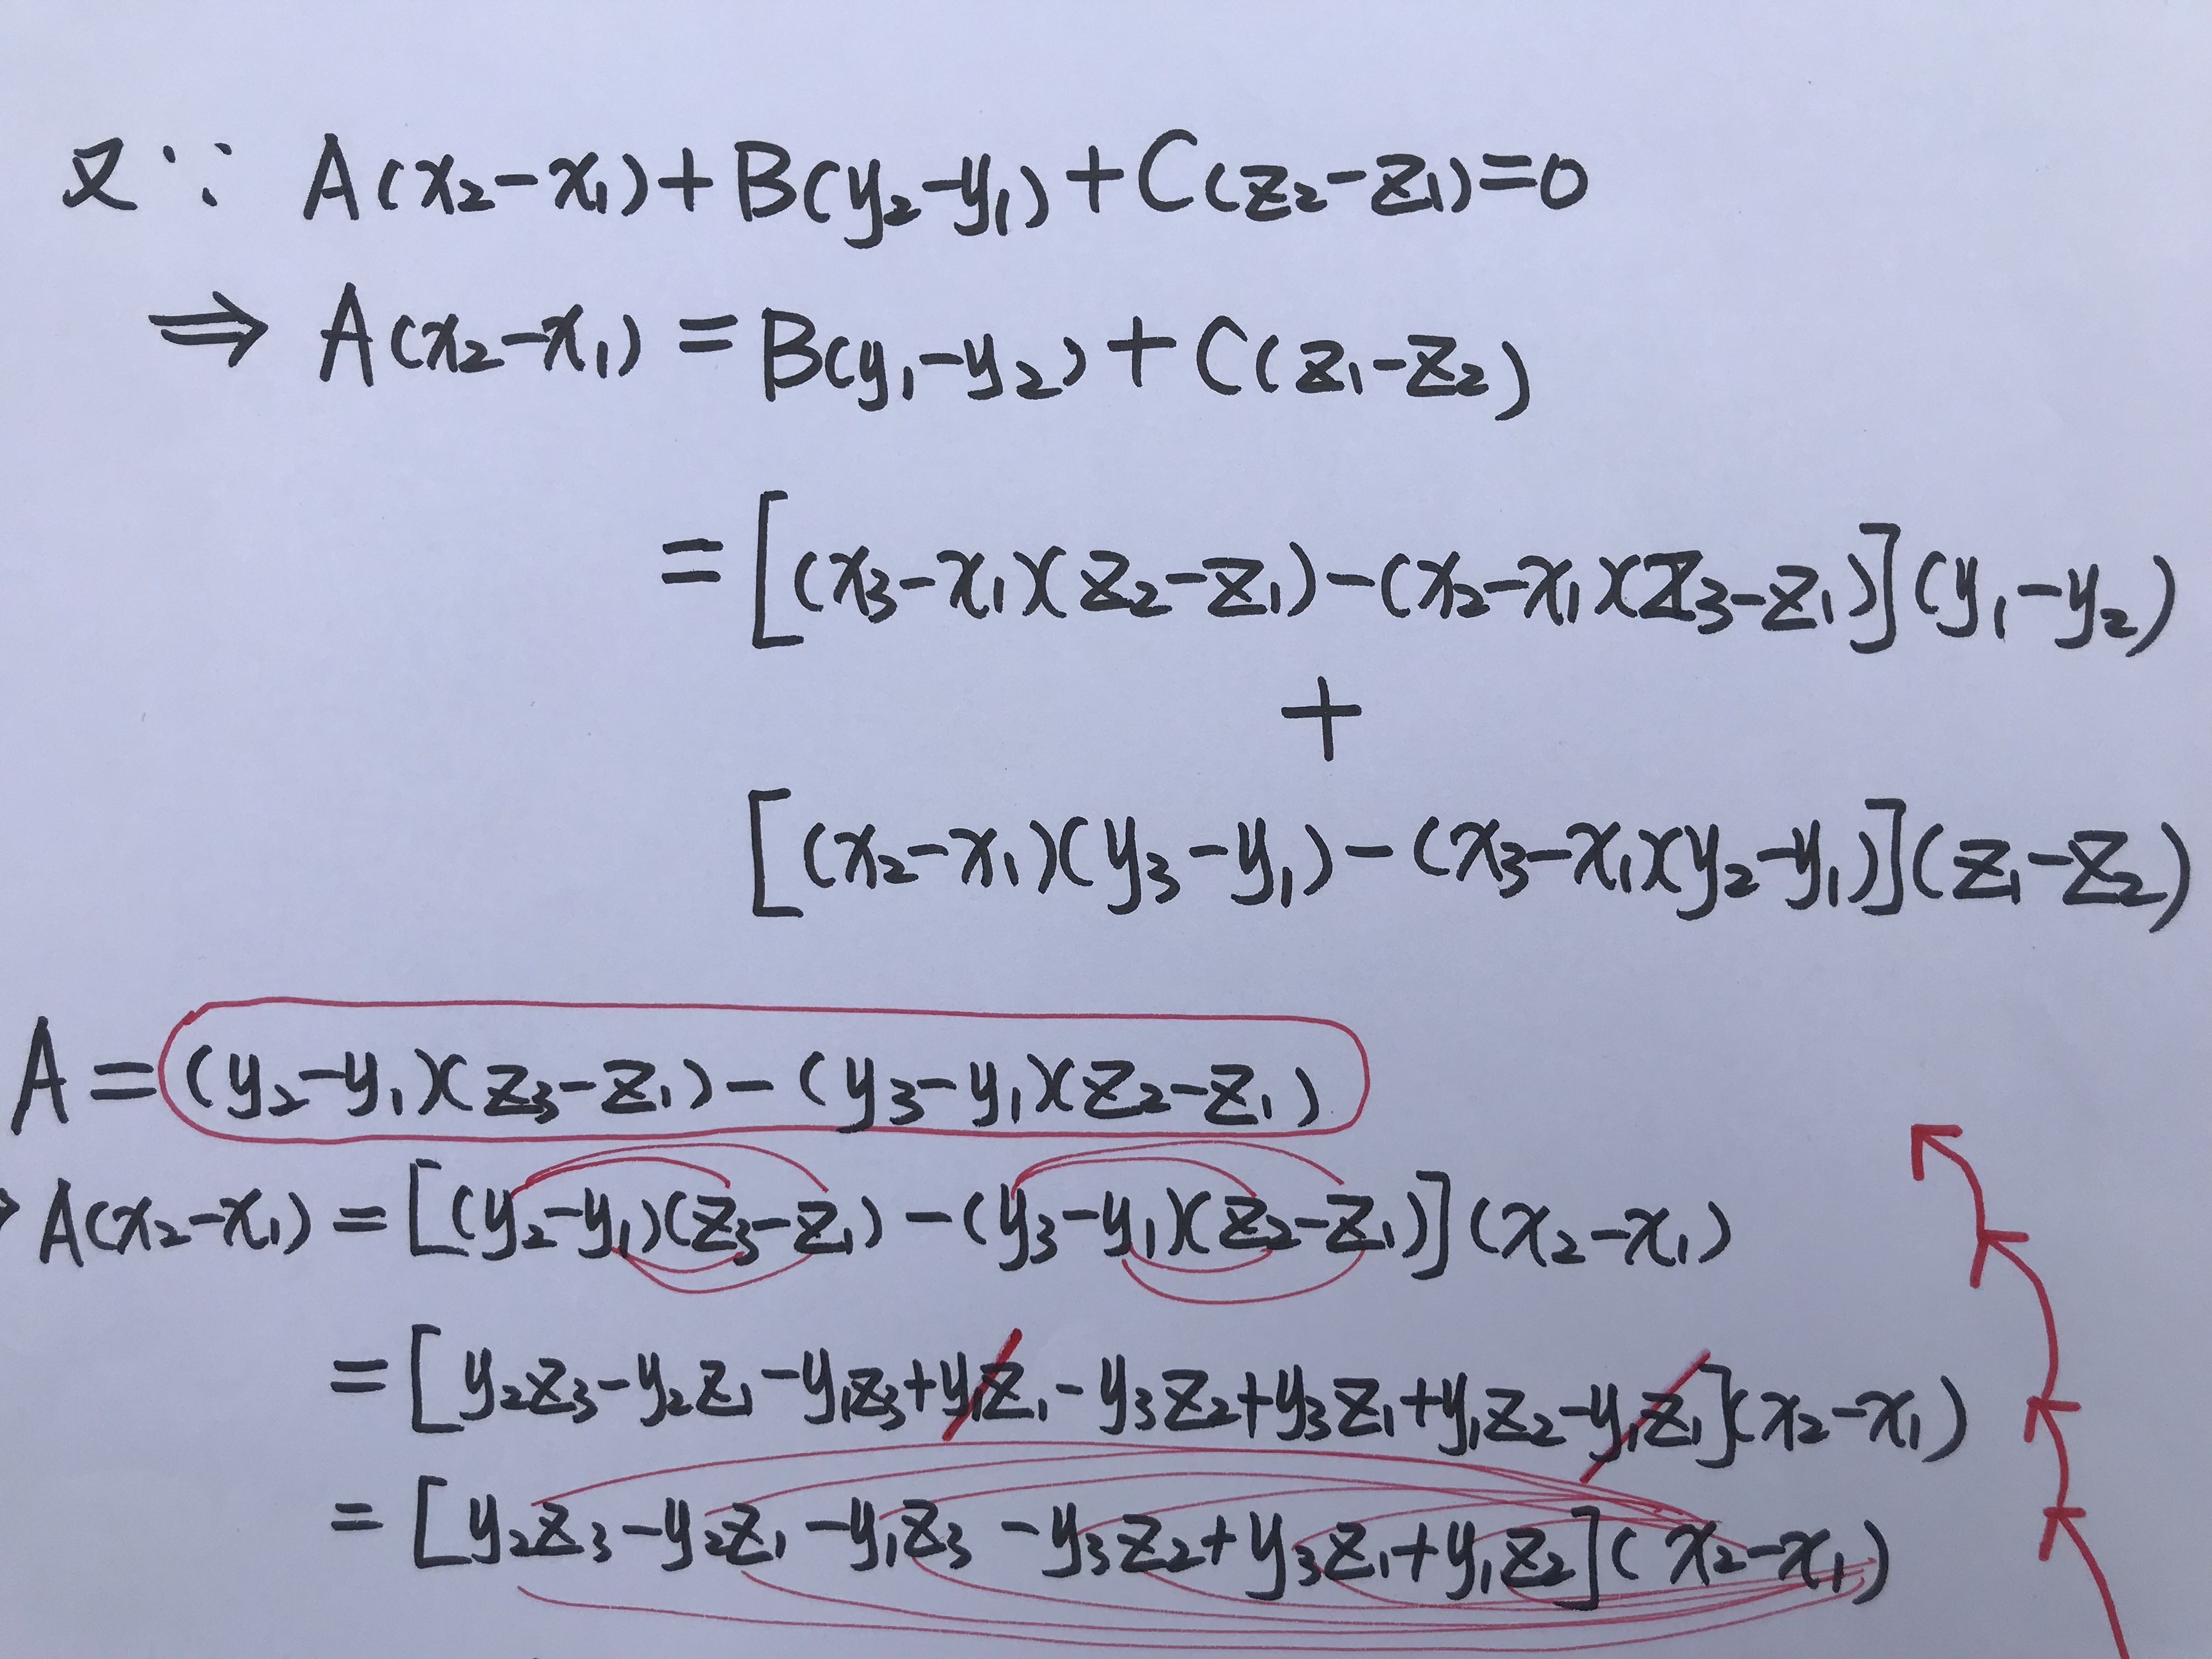 又∵ A(x₂-x₁)+B(y₂-y₁)+C(z₂-z₁)=0
⇒ A(x₂-x₁) = B(y₁-y₂)+C(z₁-z₂)
=[(x₃-x₁)(z₂-z₁)-(x₂-x₁)(z₃-z₁)](y₁-y₂)
+
[(x₂-x₁)(y₃-y₁)-(x₃-x₁)(y₂-y₁)](z₁-z₂)
A=(y₂-y₁)(z₃-z₁)-(y₃-y₁)(z₂-z₁)
A(x₂-x₁)=[(y₂-y₁)(z₃-z₁)-(y₃-y₁)(z₂-z₁)](x₂-x₁)
=[y₂z₃-y₂z₁-y₁z₃+y₁z₁-y₃z₂+y₃z₁+y₁z₂-y₁z₁](x₂-x₁)
=[y₂z₃-y₂z₁-y₁z₃-y₃z₂+y₃z₁+y₁z₂](x₂-x₁)